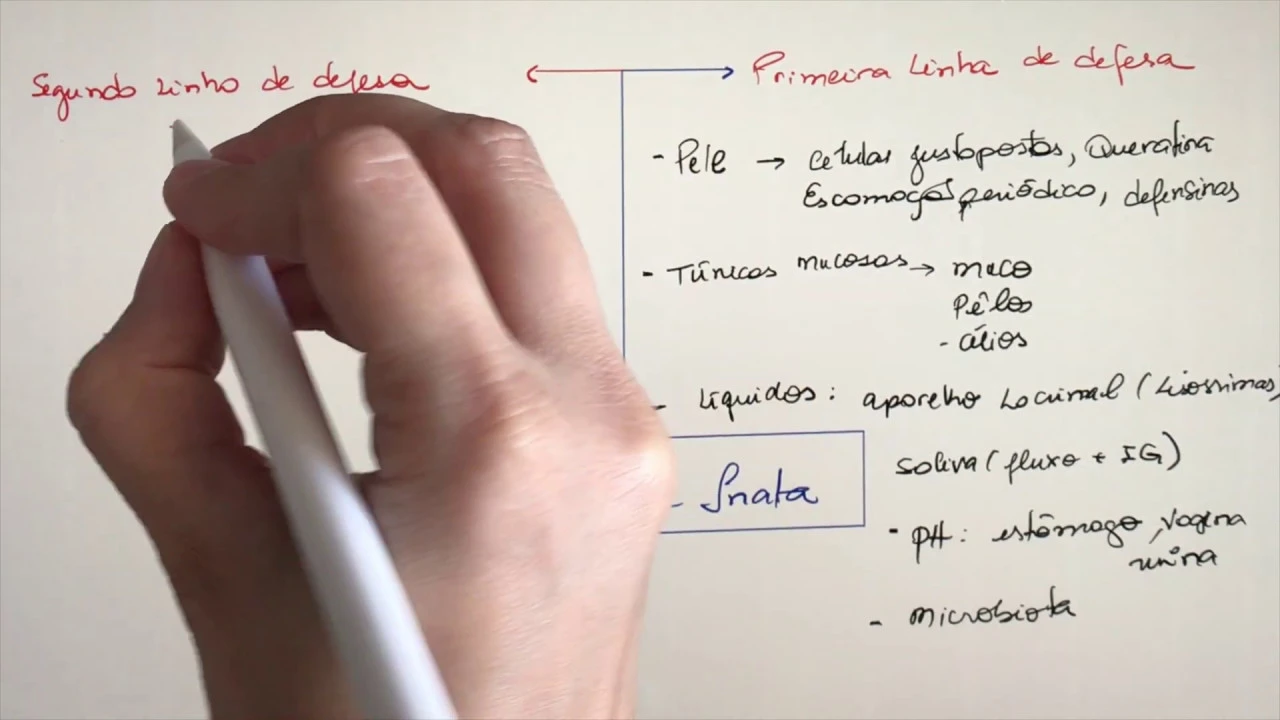 Segundo Linho de defesa
Primeira Linha de defesa
- Pele → celulas justapostas, Queratina
Escamação periódico, defensinas
- Túnicas mucosas → muco
Pêlos
- cílios
- Líquidos: aparelho Lacrimal (Lisossimas)
Saliva (fluxo + IG)
- Inata
- PH: estômago, vagina
urina
- microbiota